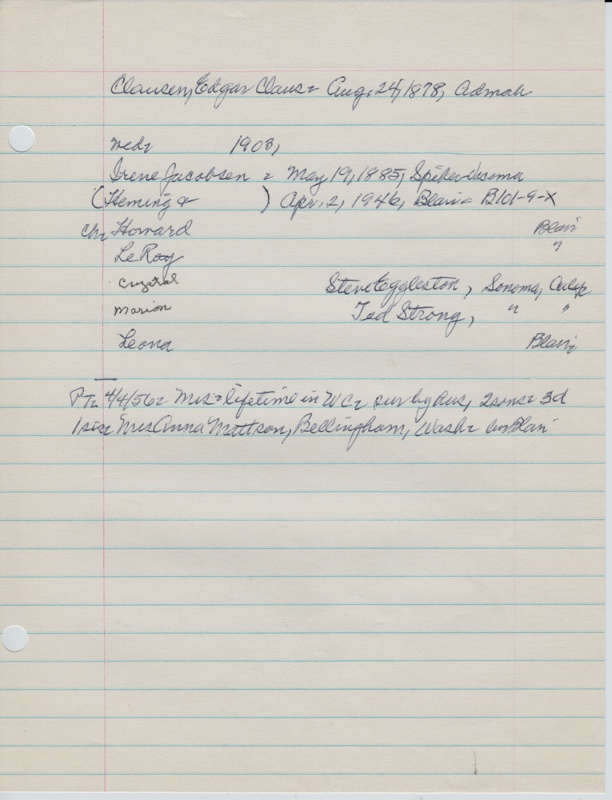 Clausen, Edgar Claus = Aug. 24, 1878, Admah
med= 1903,
Irene Jacobsen = May 19, 1885, Spiker=Tacoma
(Fleming & ) Apr. 2, 1946, Blair= B101-9-X
ch= Howard Blair
LeRoy "
Crystal Steve Eggleston, Sonoma, Calif
Marion Ted Strong, " "
Leona Blair
PT= 4/4/56= Mrs= lifetime in WC= sur by hus, 2 sons= 3d
1 sis= Mrs Anna Mattson, Bellingham, Wash= Blair